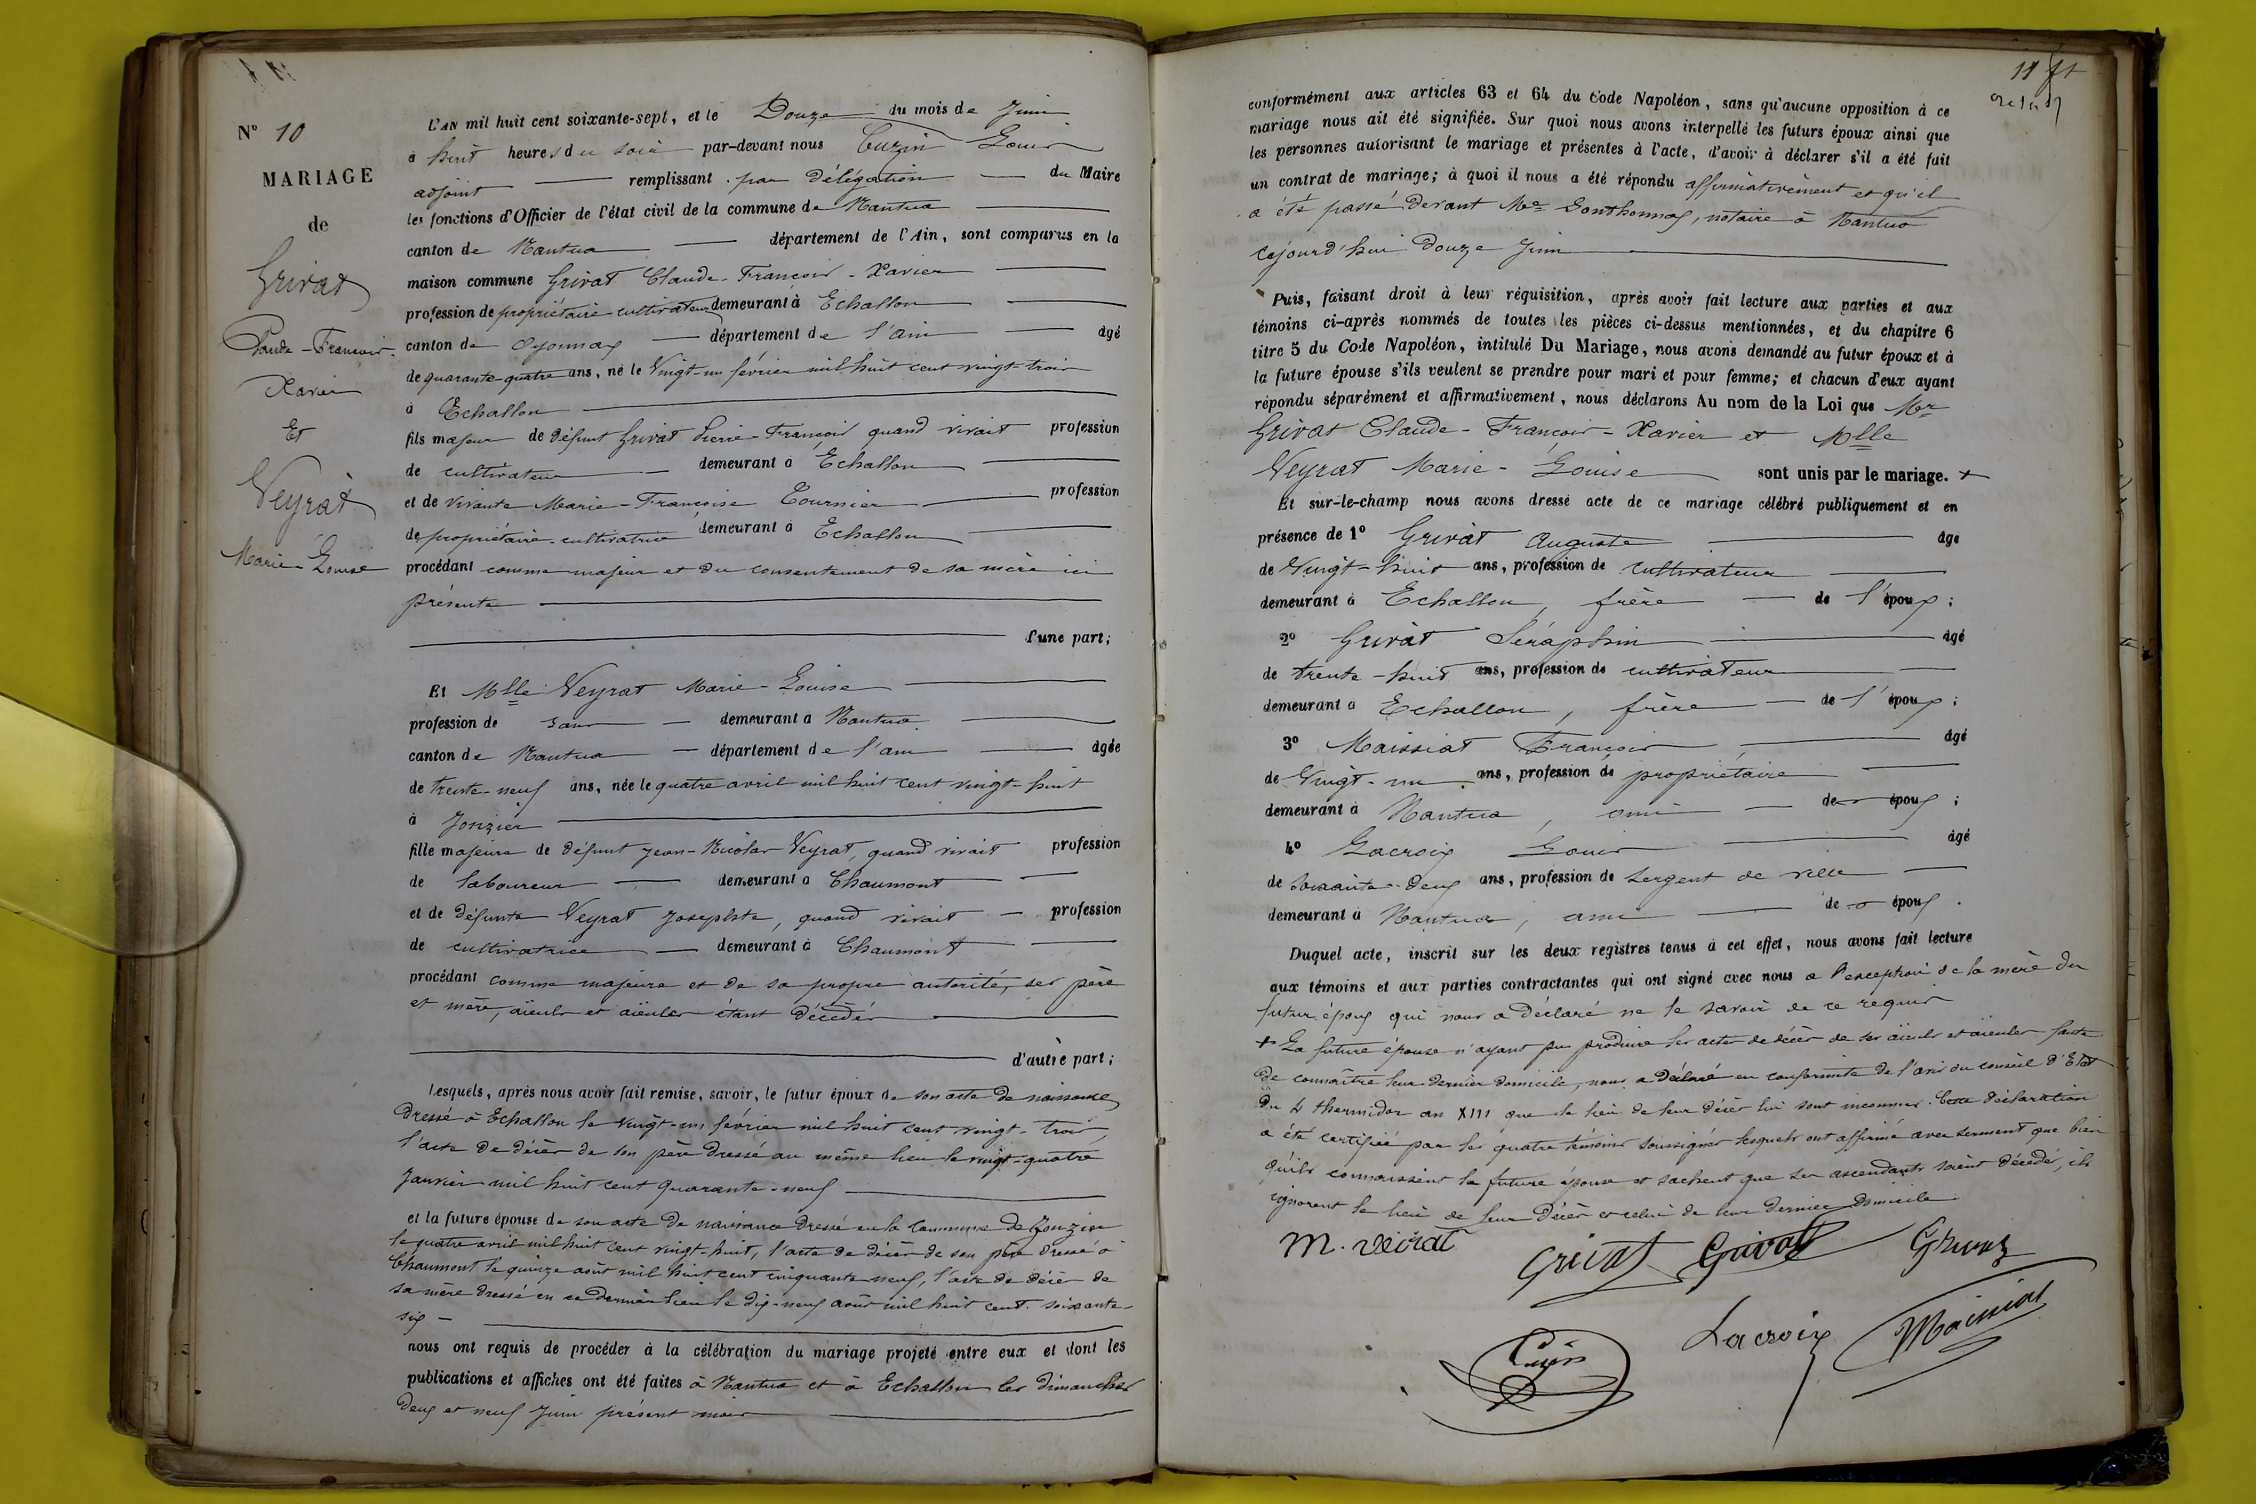 N° 10
MARIAGE
de
Grivat
Claude-François-
Xavier
Et
Veyrat
Marie-Louise
L'AN mil huit cent soixante-sept, et le Douze du mois de Juin
à huit heures du soir par-devant nous Cuzin Louis
adjoint remplissant par délégation du Maire
les fonctions d'Officier de l'état civil de la commune de Nantua
canton de Nantua département de l'Ain, sont comparus en la
maison commune Grivat Claude-François-Xavier
profession de propriétaire-cultivateur demeurant à Echallon
canton de Oyonnax département de l'ain âgé
de quarante-quatre ans, né le Vingt-un février mil huit cent vingt-trois
à Echallon
fils majeur de défunt Grivat Pierre-François quand vivait profession
de cultivateur demeurant à Echallon
et de vivante Marie-Françoise Tournier profession
de propriétaire-cultivatrice demeurant à Echallon
procédant comme majeur et du consentement de sa mère ici
présente
d'une part;
Et Mlle Veyrat Marie-Louise
profession de sans demeurant à Nantua
canton de Nantua département de l'ain âgée
de trente-neuf ans, née le quatre avril mil huit cent vingt-huit
à Jonzier
fille majeure de défunt Jean-Nicolas Veyrat, quand vivait profession
de laboureur demeurant à Chaumont
et de défunte Veyrat Josephte, quand vivait profession
de cultivatrice demeurant à Chaumont
procédant comme majeure et de sa propre autorité, ses père
et mère, aïeuls et aïeules étant décédés
d'autre part;
Lesquels, après nous avoir fait remise, savoir, le futur époux de son acte de naissance
dressé à Echallon le vingt-un février mil huit cent vingt-trois,
l'acte de décès de son père dressé au même lieu le vingt-quatre
Janvier mil huit cent quarante-neuf
et la future épouse de son acte de naissance dressé en la commune de Jonzier
le quatre avril mil huit cent vingt-huit, l'acte de décès de son père dressé à
Chaumont le quinze août mil huit cent cinquante neuf, l'acte de décès de
sa mère dressé en ce dernier lieu le dix-neuf août mil huit cent soixante-
six
nous ont requis de procéder à la célébration du mariage projeté entre eux et dont les
publications et affiches ont été faites à Nantua et à Echallon les dimanches
deux et neuf Juin présent mois
11
conformément aux articles 63 et 64 du Code Napoléon, sans qu'aucune opposition à ce
mariage nous ait été signifiée. Sur quoi nous avons interpellé les futurs époux ainsi que
les personnes autorisant le mariage et présentes à l'acte, d'avoir à déclarer s'il a été fait
un contrat de mariage; à quoi il nous a été répondu affirmativement et qu'il
a été passé devant Me Gonthonnas, notaire à Nantua
cejourd'hui douze Juin
Puis, faisant droit à leur réquisition, après avoir fait lecture aux parties et aux
témoins ci-après nommés de toutes les pièces ci-dessus mentionnées, et du chapitre 6
titre 5 du Code Napoléon, intitulé Du Mariage, nous avons demandé au futur époux et à
la future épouse s'ils veulent se prendre pour mari et pour femme; et chacun d'eux ayant
répondu séparément et affirmativement, nous déclarons Au nom de la Loi que Mr
Grivat Claude-François-Xavier et Mlle
Veyrat Marie-Louise sont unis par le mariage. +
Et sur-le-champ nous avons dressé acte de ce mariage célébré publiquement et en
présence de 1° Grivat Auguste âgé
de Vingt-huit ans, profession de cultivateur
demeurant à Echallon, frère de l'époux;
2° Grivat Séraphin âgé
de trente-huit ans, profession de cultivateur
demeurant à Echallon, frère de l'époux;
3° Maissiat François âgé
de Vingt-un ans, profession de propriétaire
demeurant à Nantua, ami de époux;
4° Lacroix Louis âgé
de soixante-deux ans, profession de sergent de ville
demeurant à Nantua, ami de époux.
Duquel acte, inscrit sur les deux registres tenus à cet effet, nous avons fait lecture
aux témoins et aux parties contractantes qui ont signé avec nous a l'exception de la mère du
futur époux qui nous a déclaré ne le savoir de ce requis
+ La future épouse n'ayant pu produire les actes de décès de ses aïeuls et aïeules faute
de connaître leur dernier domicile, nous a déclaré en conformité de l'avis du conseil d'Etat
du 4 thermidor an XIII que le lieu de leur décès lui sont inconnus. Cette déclaration
a été certifiée par les quatre témoins soussignés lesquels ont affirmé avec serment que bien
qu'ils connaissent la future épouse et sachent que ses ascendants soient décédés, ils
ignorent le lieu de leur décès et celui de leur dernier domicile
M. veirat
Grivat Grivat Grivat
Cuzin
Lacroix Maissiat